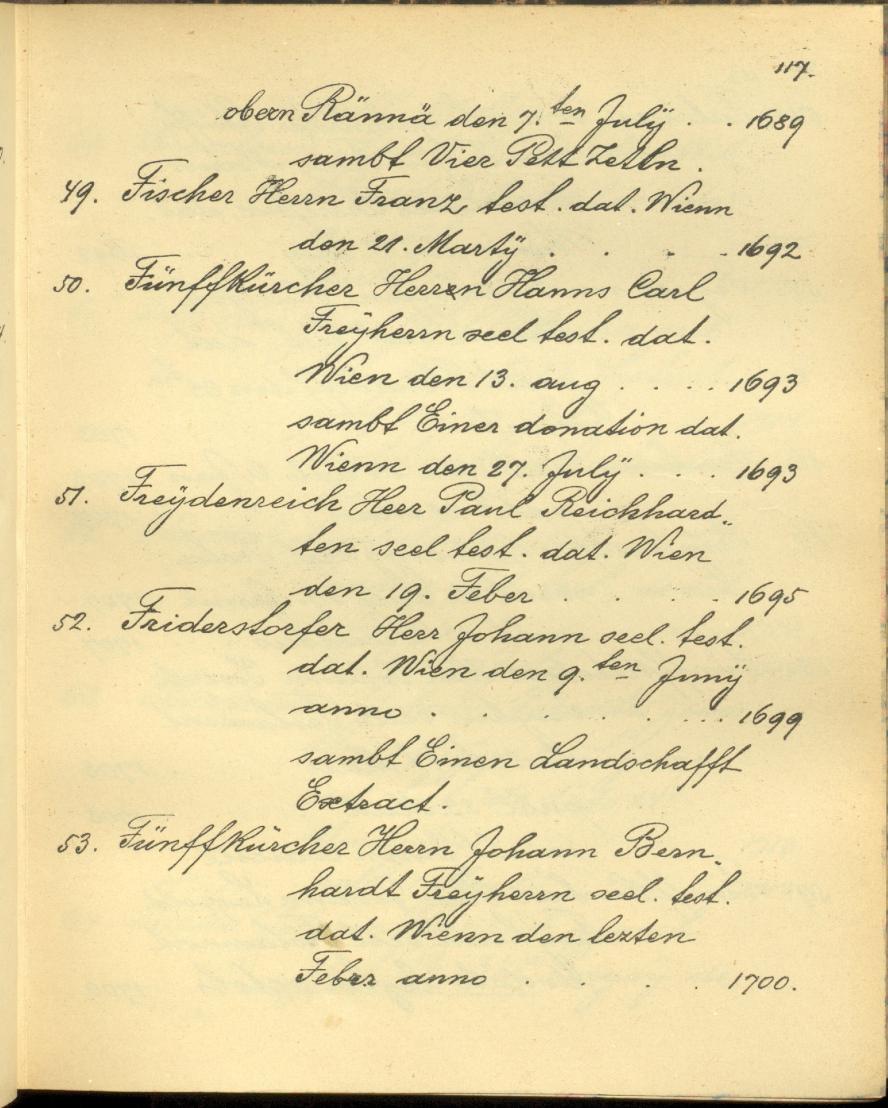 117.
obern Rännä den 7.ten Julÿ . . 1689
sambt Vier Pett Zettln .
49. Fischer Herrn Franz test. dat. Wienn
den 21. Martÿ . . . . 1692
50. Fünffkürcher Herren Hanns Carl
Freÿherrn seel test. dat.
Wien den 13. aug . . . . 1693
sambt Einer donation dat.
Wienn den 27. Julÿ . . . 1693
51. Freÿdenreich Herr Paul Reichhard„
ten seel test. dat. Wien
den 19. Feber . . . . 1695
52. Friderstorfer Herr Johann seel. test.
dat. Wien den 9.ten Junÿ
anno . . . . . . . 1699
sambt Einen Landschafft
Extract.
53. Fünffkürcher Herrn Johann Bern„
hardt Freÿherrn seel. test.
dat. Wienn den lezten
Febrr anno . . . . 1700.